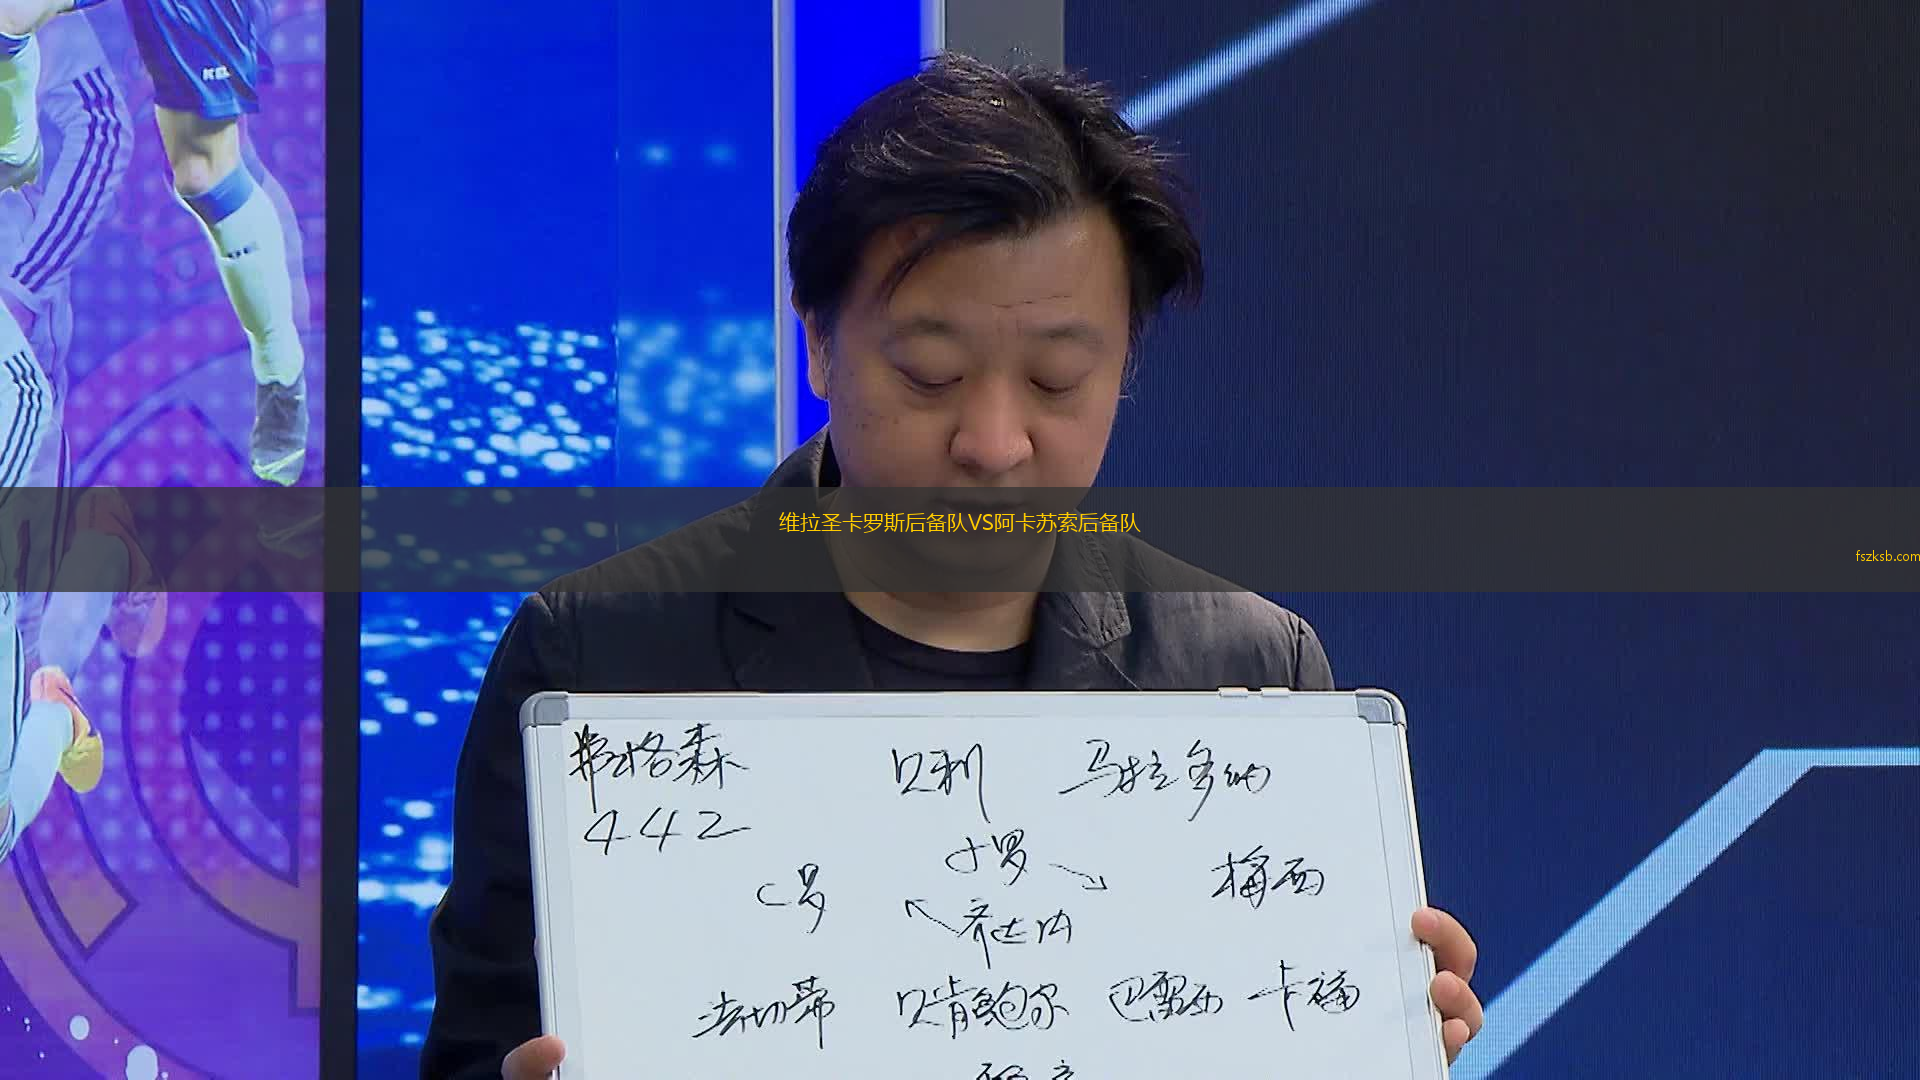 维拉圣卡罗斯后备队VS阿卡苏索后备队
fszksb.com
弗格森 贝利 马拉多纳
442
小罗
C罗 梅西
齐达内
法切蒂 贝肯鲍尔 巴雷西 卡福